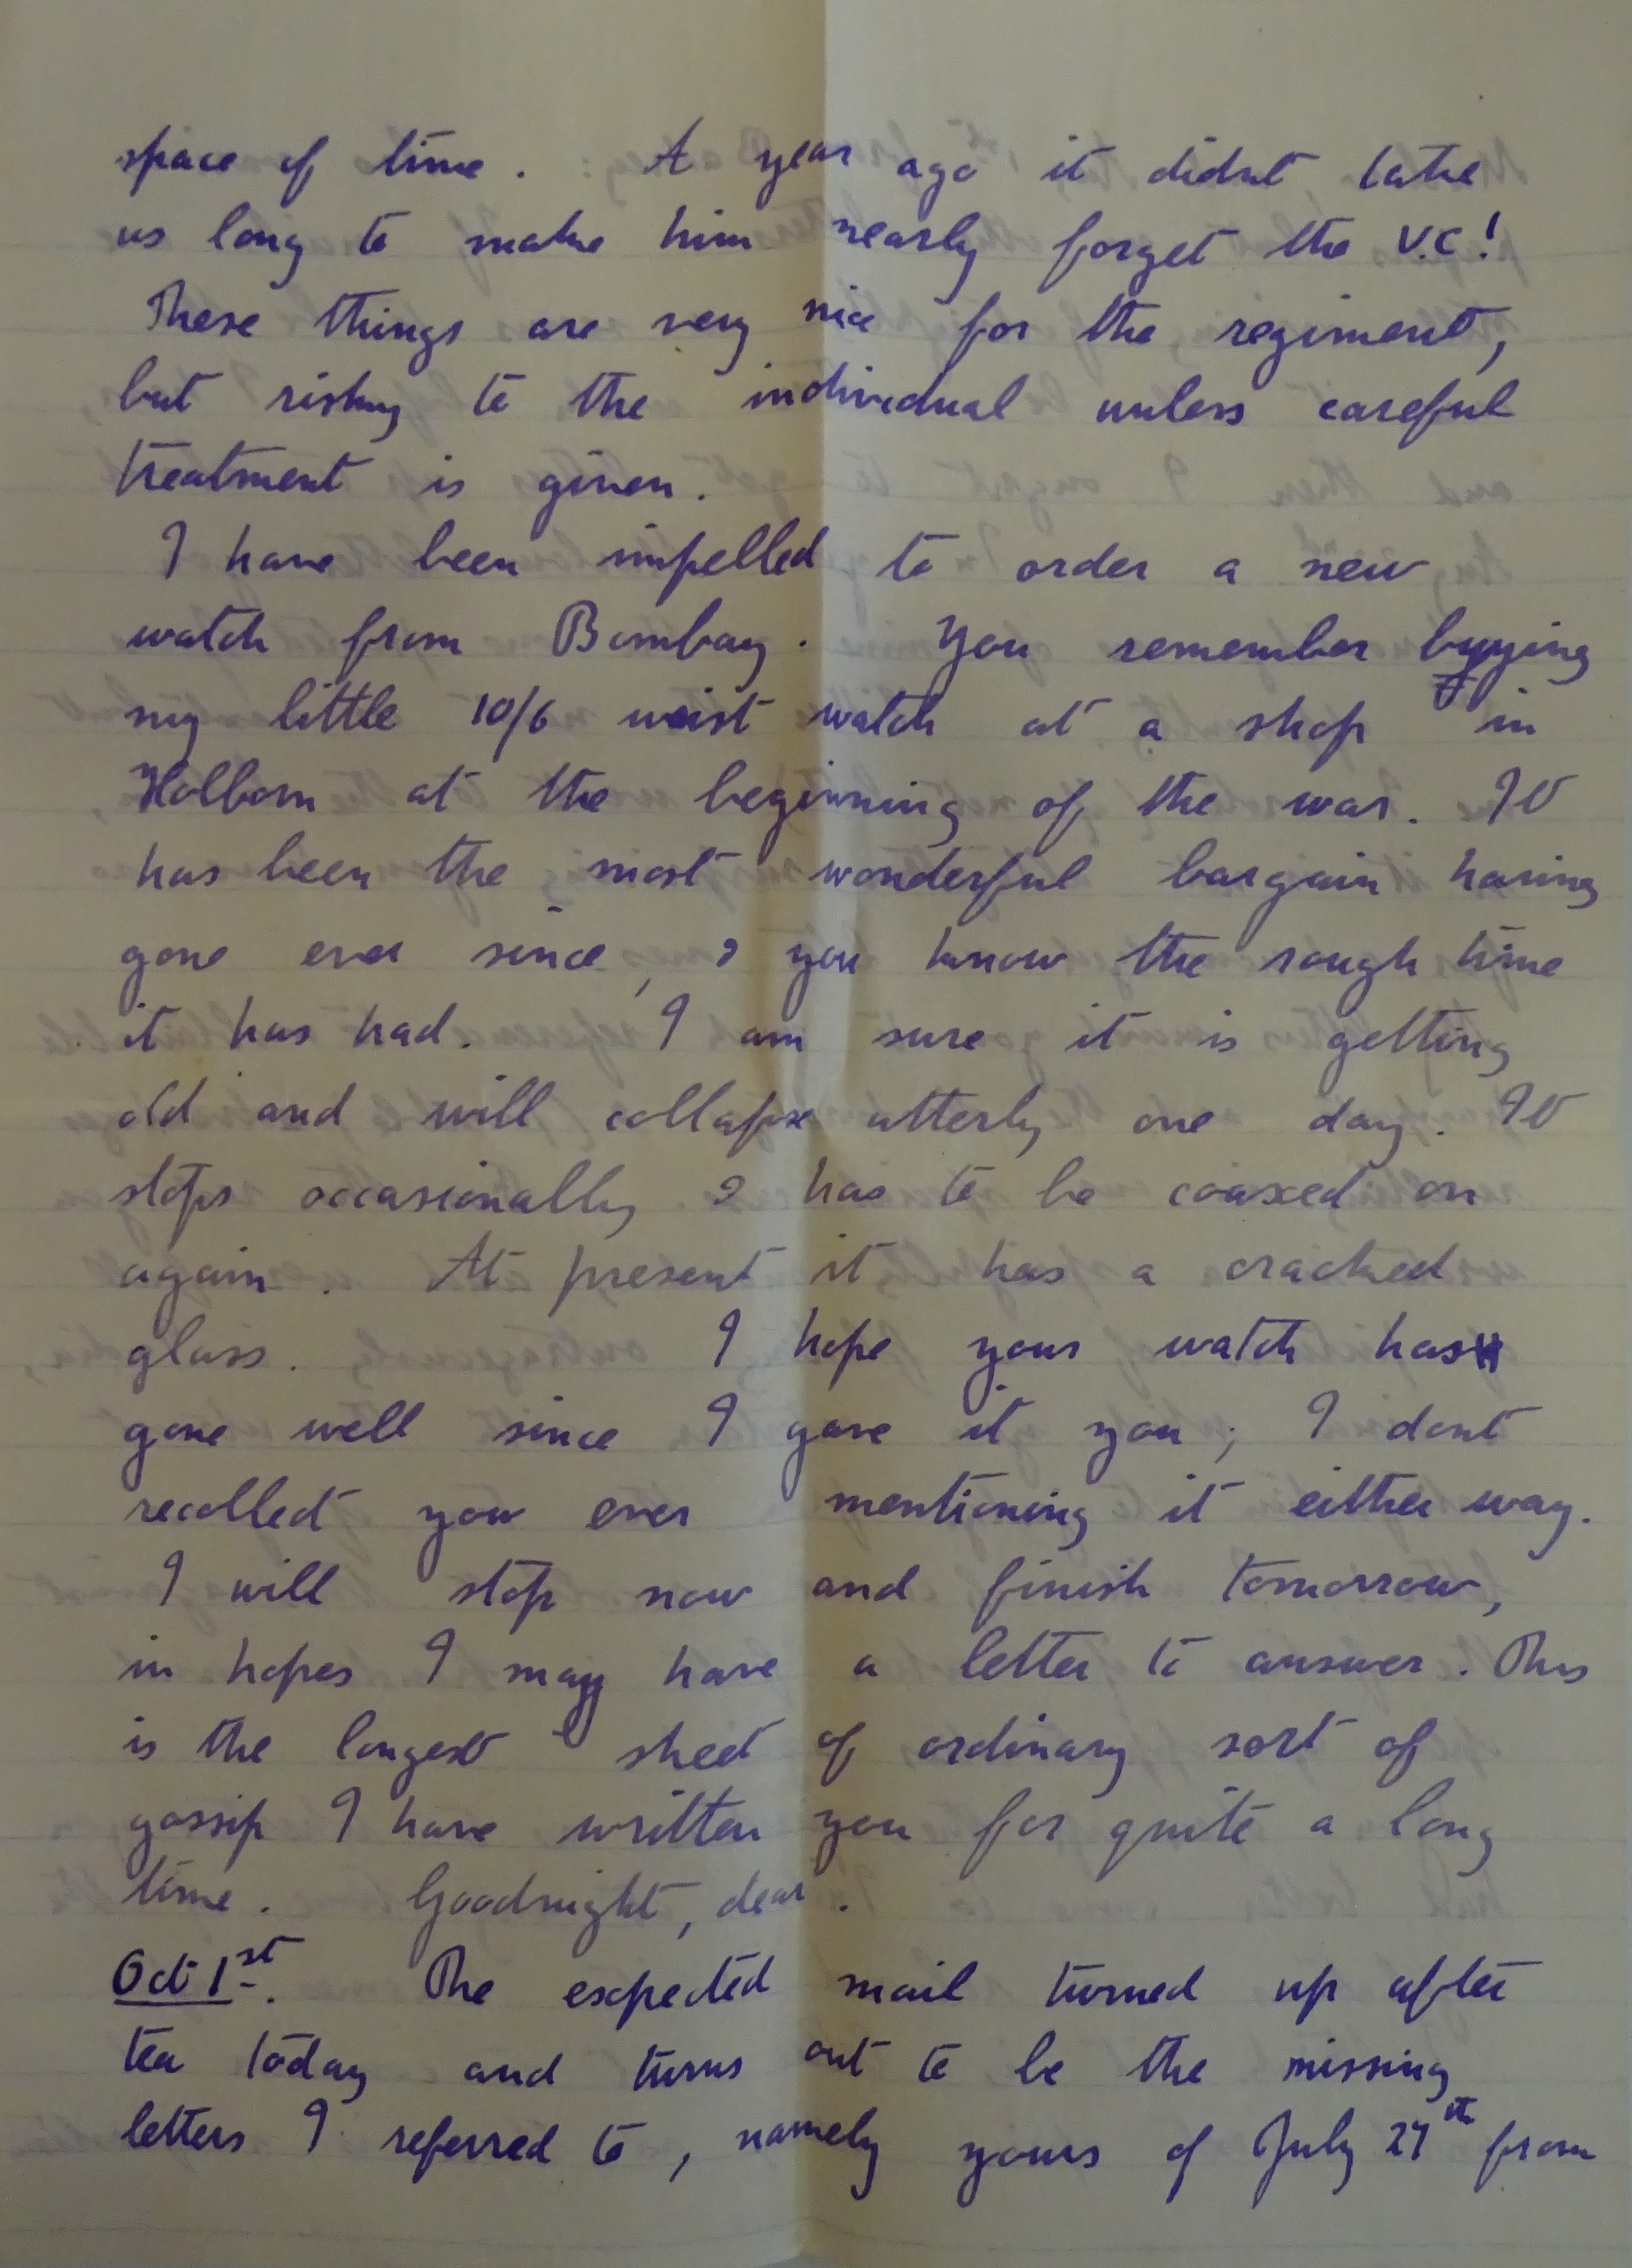 space of time. A year ago it didnt take
us long to make him nearly forget the V.C!
These things are very nice for the regiment,
but risky to the individual unless careful
treatment is given.
I have been impelled to order a new
watch from Bombay. You remember buying
my little 10/6 wrist watch at a shop in
Holborn at the beginning of the war. It
has been the most wonderful bargain having
gone ever since, & you know the rough time
it has had. I am sure it is getting
old and will collapse utterly one day. It
stops occasionally & has to be coaxed on
again. At present it has a cracked
glass. I hope your watch has
gone well since I gave it you; I dont
recollect you ever mentioning it either way.
I will stop now and finish tomorrow,
in hopes I may have a letter to answer. This
is the longest sheet of ordinary sort of
gossip I have written you for quite a long
time. Goodnight, dear.
Oct 1st. The expected mail turned up after
tea today and turns out to be the missing
letters I referred to, namely yours of July 27th from